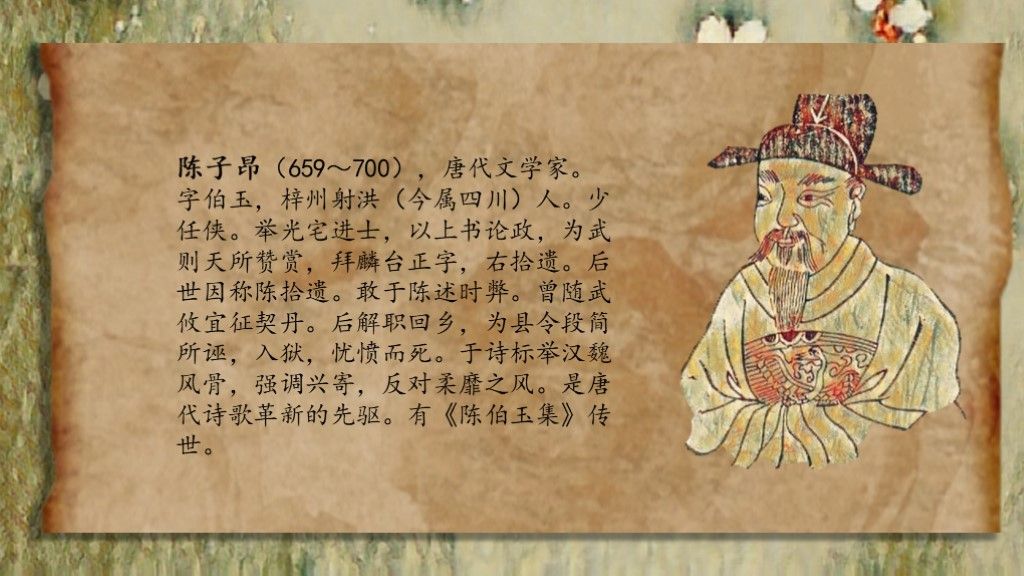 陈子昂（659～700），唐代文学家。
字伯玉，梓州射洪（今属四川）人。少
任侠。举光宅进士，以上书论政，为武
则天所赞赏，拜麟台正字，右拾遗。后
世因称陈拾遗。敢于陈述时弊。曾随武
攸宜征契丹。后解职回乡，为县令段简
所诬，入狱，忧愤而死。于诗标举汉魏
风骨，强调兴寄，反对柔靡之风。是唐
代诗歌革新的先驱。有《陈伯玉集》传
世。